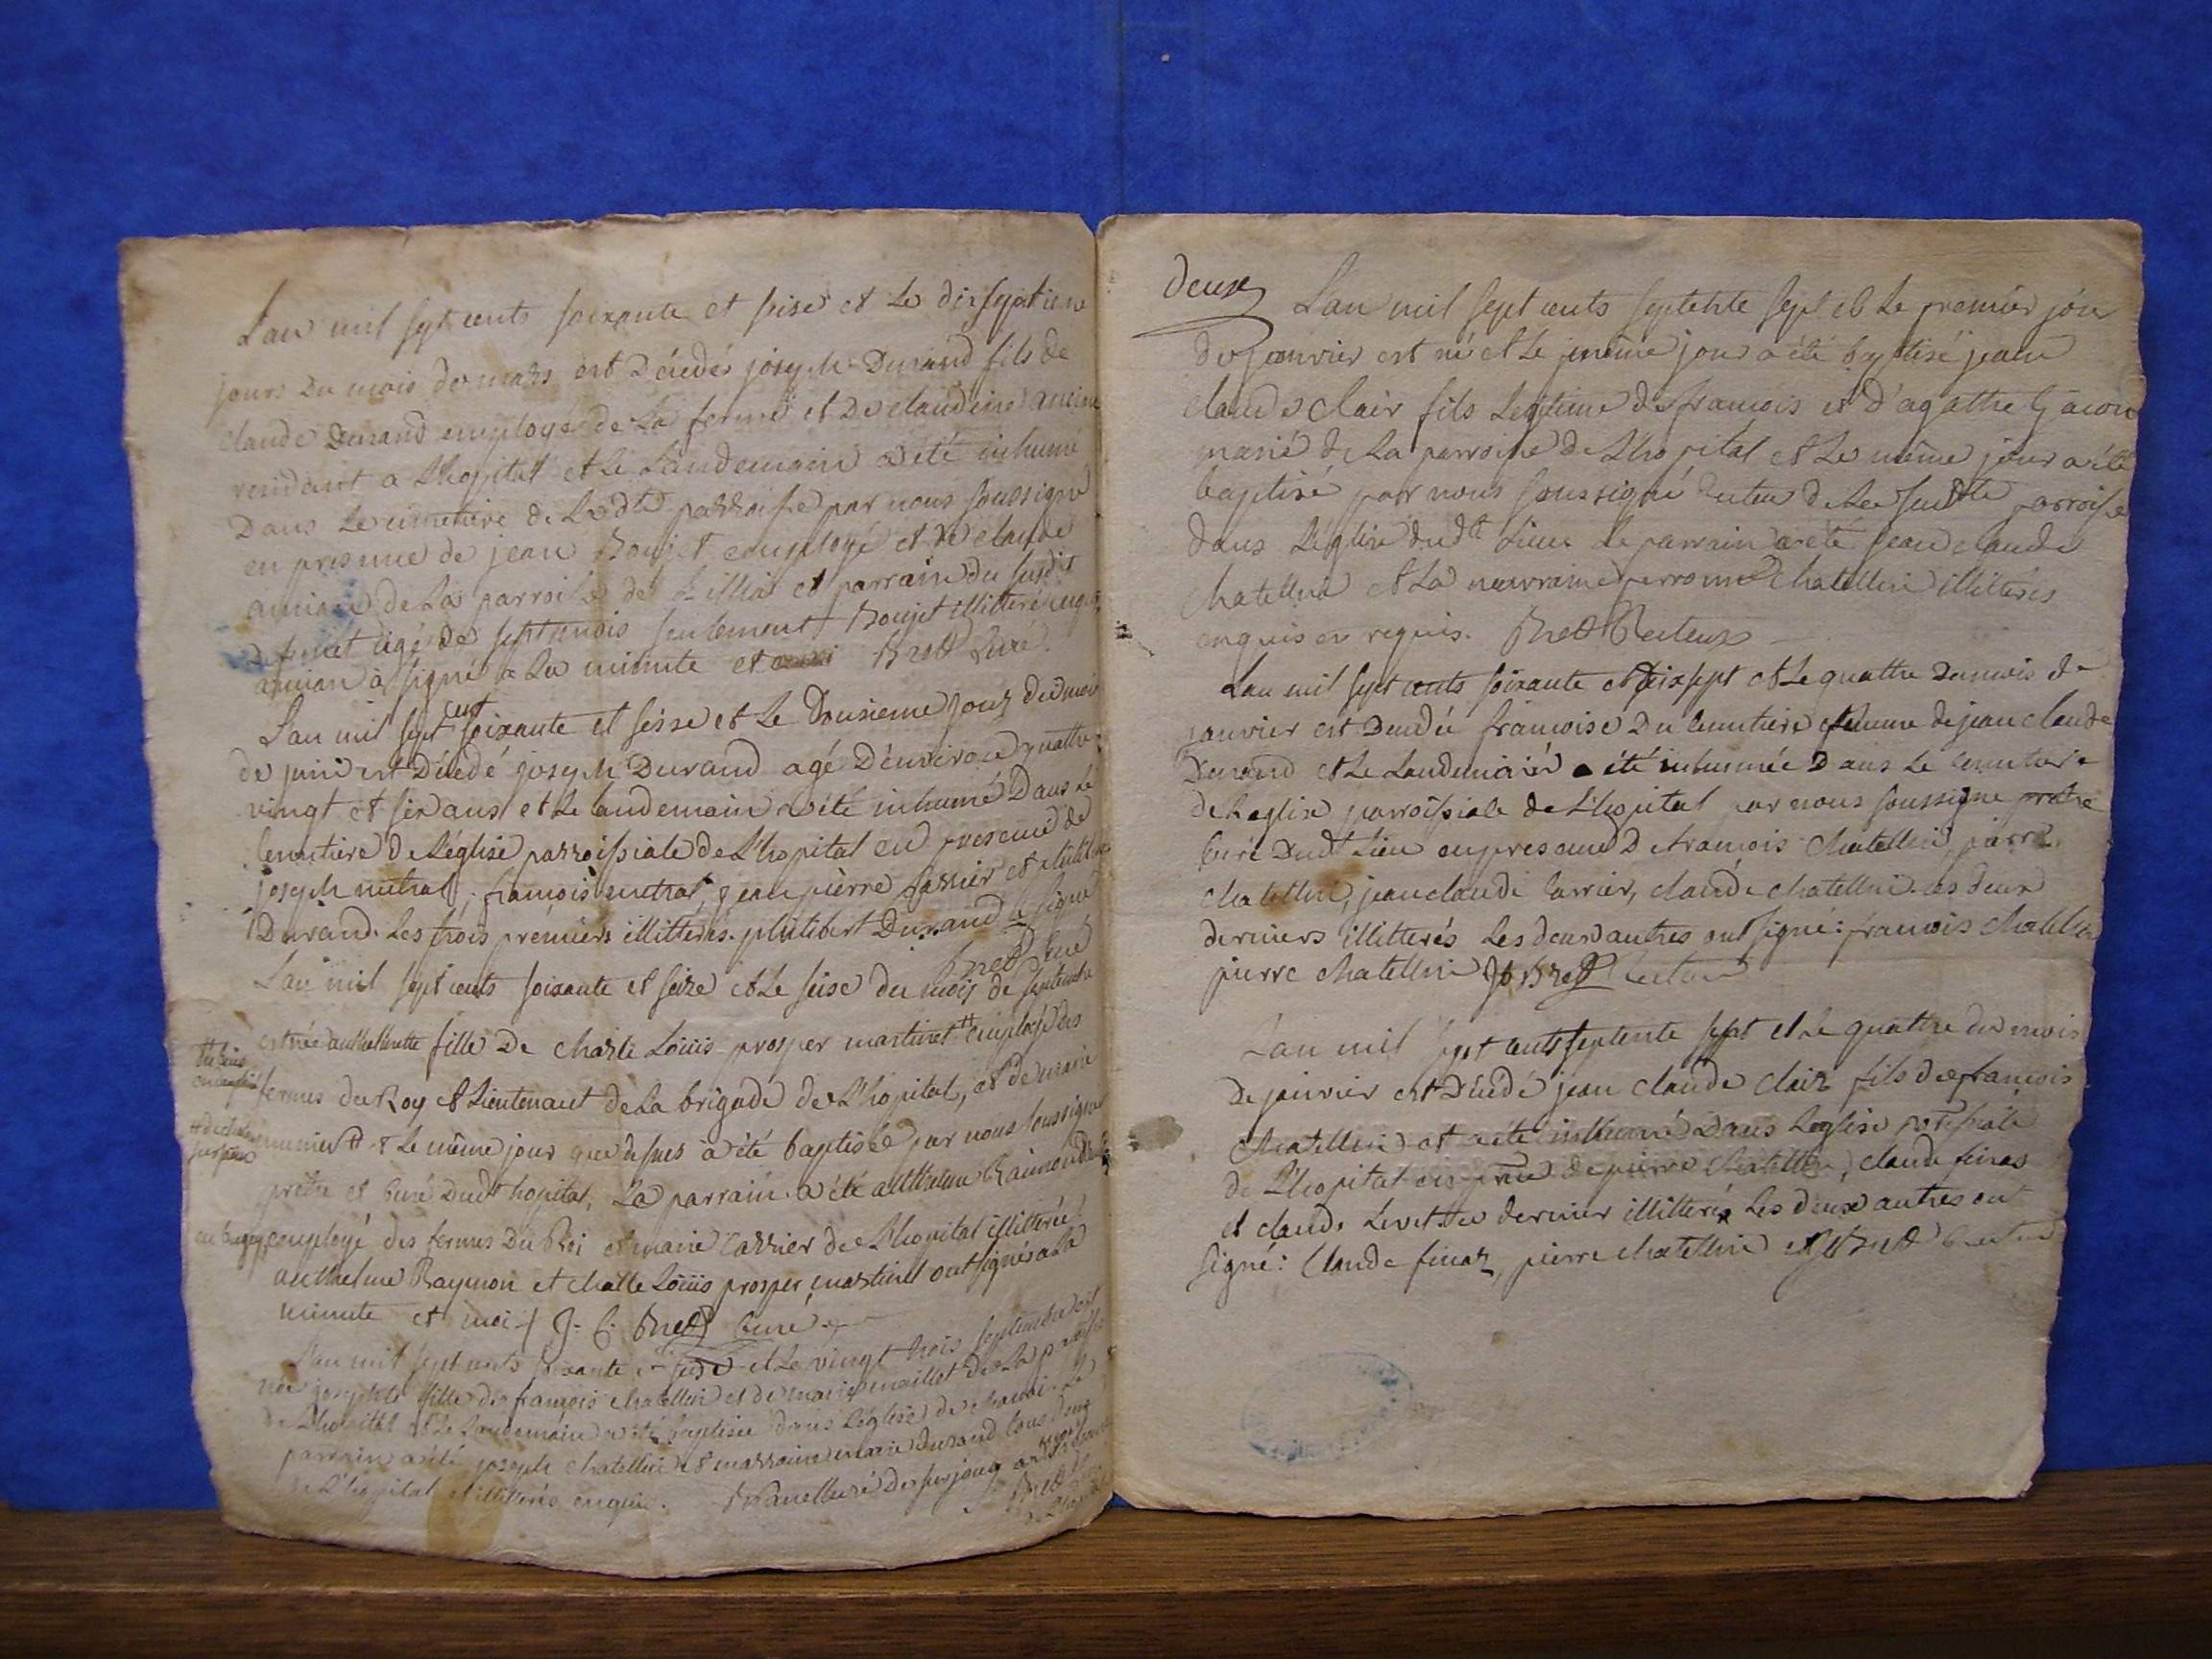 L'an mil sept cents soixante et seise et le dixseptieme
jours du mois de mars est Décédés joseph Durand fils de
claude Durand employé de La ferme et De claudine
residant a Lhopital et Le Landemain a été inhumé
Dans Le cimetiere de Ladte parroisse par nous soussigné
en presence de jean Boujet employé et de claude
de La parroisse de et parrain du susdit
defunt agé de sept mois seulement Boujet illitteré enquis
à signé a La minute et Brett Curé.
L'an mil sept cent soixante et seise et Le Dousieme jour du mois
de juin est Décédé joseph Durand agé D'environ quattre
vingt et six ans et Le landemain a été inhumé Dans Le
Cemetiere de Léglise parroissiale de Lhopital en presence de
joseph mitral, françois mitral, jean pierre carrier et
Durand. Les trois premiers illittérés. philibert Durand a signé
Brett curé
L'an mil sept cents soixante et seize et Le seise du mois de septembre
est née fille De charle Loüis prosper martinet employé des
fermes du Roy et Lieutenant de La brigade de Lhopital, et de marie
et Le même jour que desus a été baptisée par nous soussigné
prêtre et Curé Dudt hopital, La parrain a été anthelme Raimond
employé des fermes Du Roi et marie Carrier de Lhopital illitterée
anthelme Raymon et charle Loüis prosper martinet ont signés a La
minute et moi J. C. Brett Curé
L'an mil sept cents soixante et seise et Le vingt trois septembre est
née josephte fille de françois chatellin et de marie maillet de La parroisse
de Lhopital et Le Landemain a été baptisée dans Léglise de Le
parrain a été joseph chatellin et marraine marie Durand tous deux
de Lhopital illitterés enquis.
deux
L'an mil sept cents septente sept et Le premier jour
de janvier est né et Le même jour a été baptisé jean
claude clair fils Legitime de françois et d'agathe Gacon
marié de La parroisse de Lhopital et Le même jour a été
baptisé par nous soussigné recteur de La susdte parroisse
dans L'église dudt Lieu Le parrain a été jean claude
Chatellin et La marraine perronne Chatellin illitterés
enquis et requis. Brett Recteur
L'an mil sept cents soixante et dixsept et Le quattre du mois de
janvier est Decedée françoise Du Cemetiere femme de jean claude
Durand et Le Landemain a été inhumée Dans Le Cemetiere
de Leglise parroissiale de Lhopital par nous soussigne pretre
Curé Dudt Lieu en presence De francois Chatellin, pierre
chatellin, jean claude Carrier, claude chatellin. Les deux
derniers illitterés Les deux autres ont signé: francois chatellin
pierre chatellin Brett Recteur
L'an mil sept cents septente sept et Le quattre du mois
De janvier est Décédé jean claude clair fils de francois
Chatellin et a été inhumé Dans Leglise
de Lhopital en de pierre chatellin, claude finas
et claude Levet. Ce dernier illitterés Les deux autres ont
signé: Claude finaz, pierre chatellin et Brett